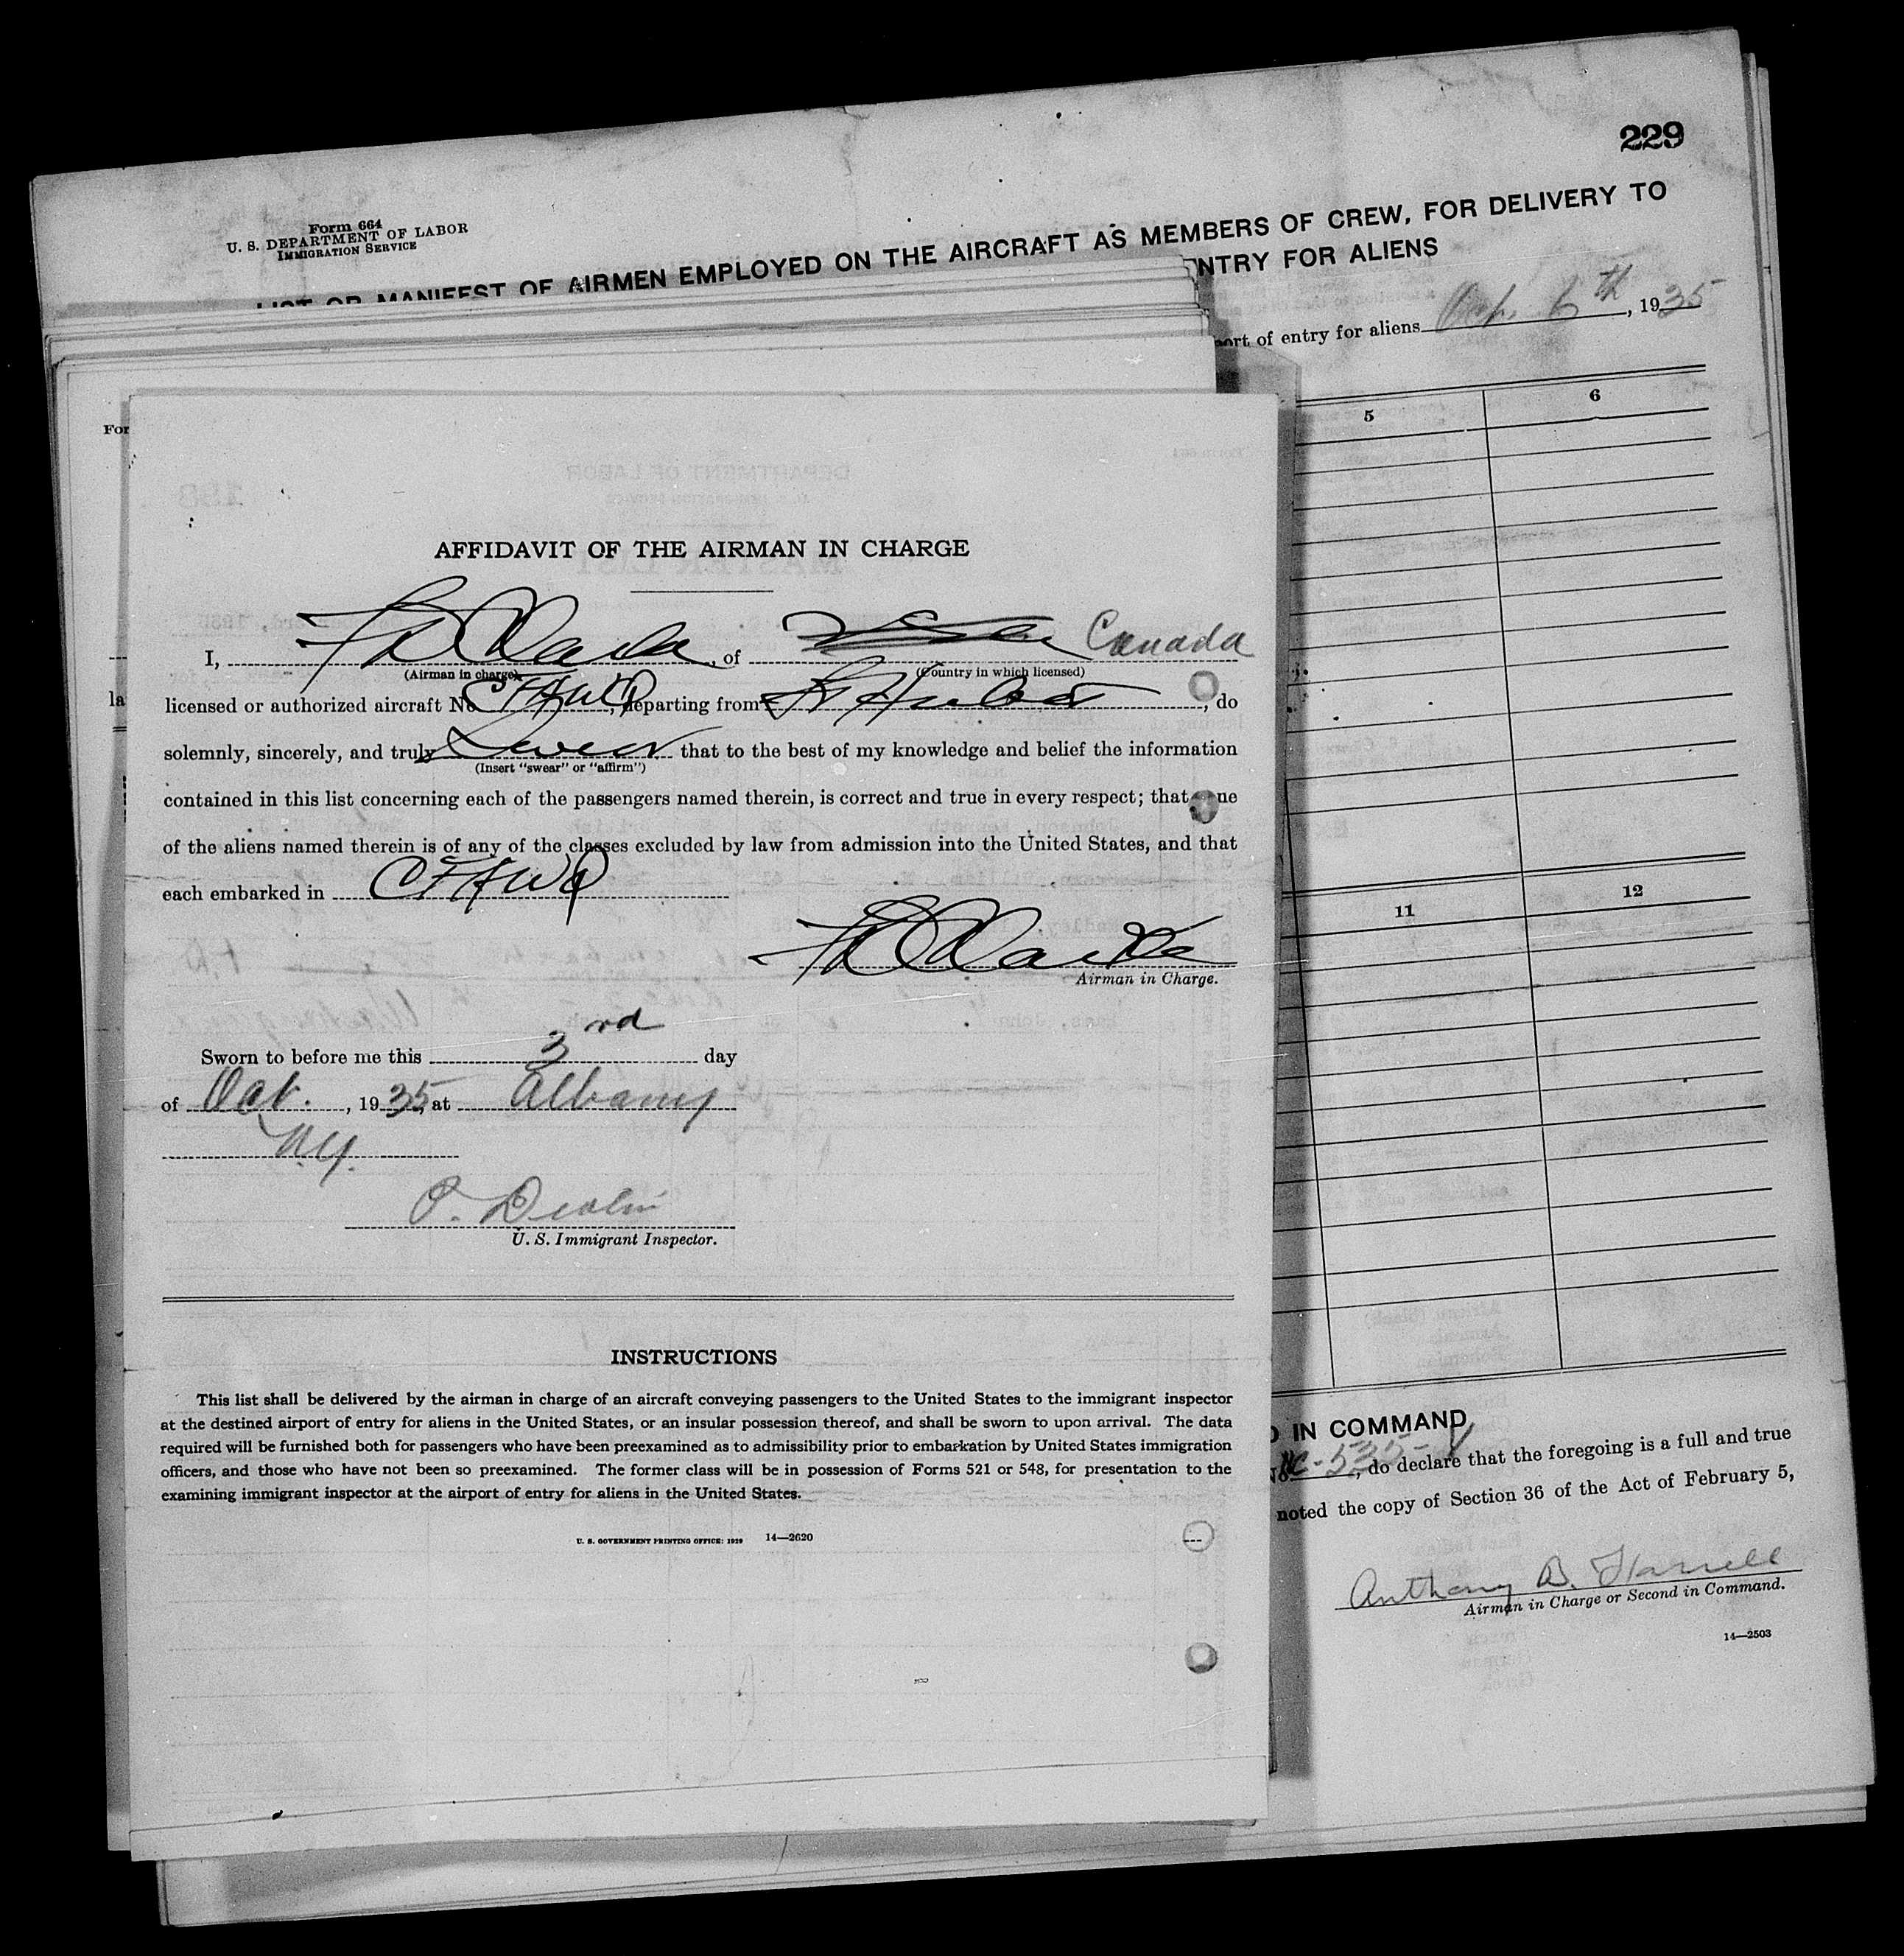 229
Form 664
U. S. DEPARTMENT OF LABOR
IMMIGRATION SERVICE
LIST OR MANIFEST OF AIRMEN EMPLOYED ON THE AIRCRAFT AS MEMBERS OF CREW, FOR DELIVERY TO
ENTRY FOR ALIENS
port of entry for aliens 6th, 1935
5 6
11 12
D IN COMMAND
No. NC-535-Y, do declare that the foregoing is a full and true
noted the copy of Section 36 of the Act of February 5,
Anthony B. Harrell
Airman in Charge or Second in Command.
14—2503
For
la
AFFIDAVIT OF THE AIRMAN IN CHARGE
I, Clarke, of Canada
(Airman in charge) (Country in which licensed)
licensed or authorized aircraft No CFAWQ, departing from St Hubert, do
solemnly, sincerely, and truly swear that to the best of my knowledge and belief the information
(Insert "swear" or "affirm")
contained in this list concerning each of the passengers named therein, is correct and true in every respect; that ne
of the aliens named therein is of any of the classes excluded by law from admission into the United States, and that
each embarked in CFAWQ
Clarke
Airman in Charge.
Sworn to before me this 3rd day
of Oct., 1935, at Albany
N.Y.
P. Devlin
U. S. Immigrant Inspector.
INSTRUCTIONS
This list shall be delivered by the airman in charge of an aircraft conveying passengers to the United States to the immigrant inspector
at the destined airport of entry for aliens in the United States, or an insular possession thereof, and shall be sworn to upon arrival. The data
required will be furnished both for passengers who have been preexamined as to admissibility prior to embarkation by United States immigration
officers, and those who have not been so preexamined. The former class will be in possession of Forms 521 or 548, for presentation to the
examining immigrant inspector at the airport of entry for aliens in the United States.
U. S. GOVERNMENT PRINTING OFFICE: 1929 14—2620